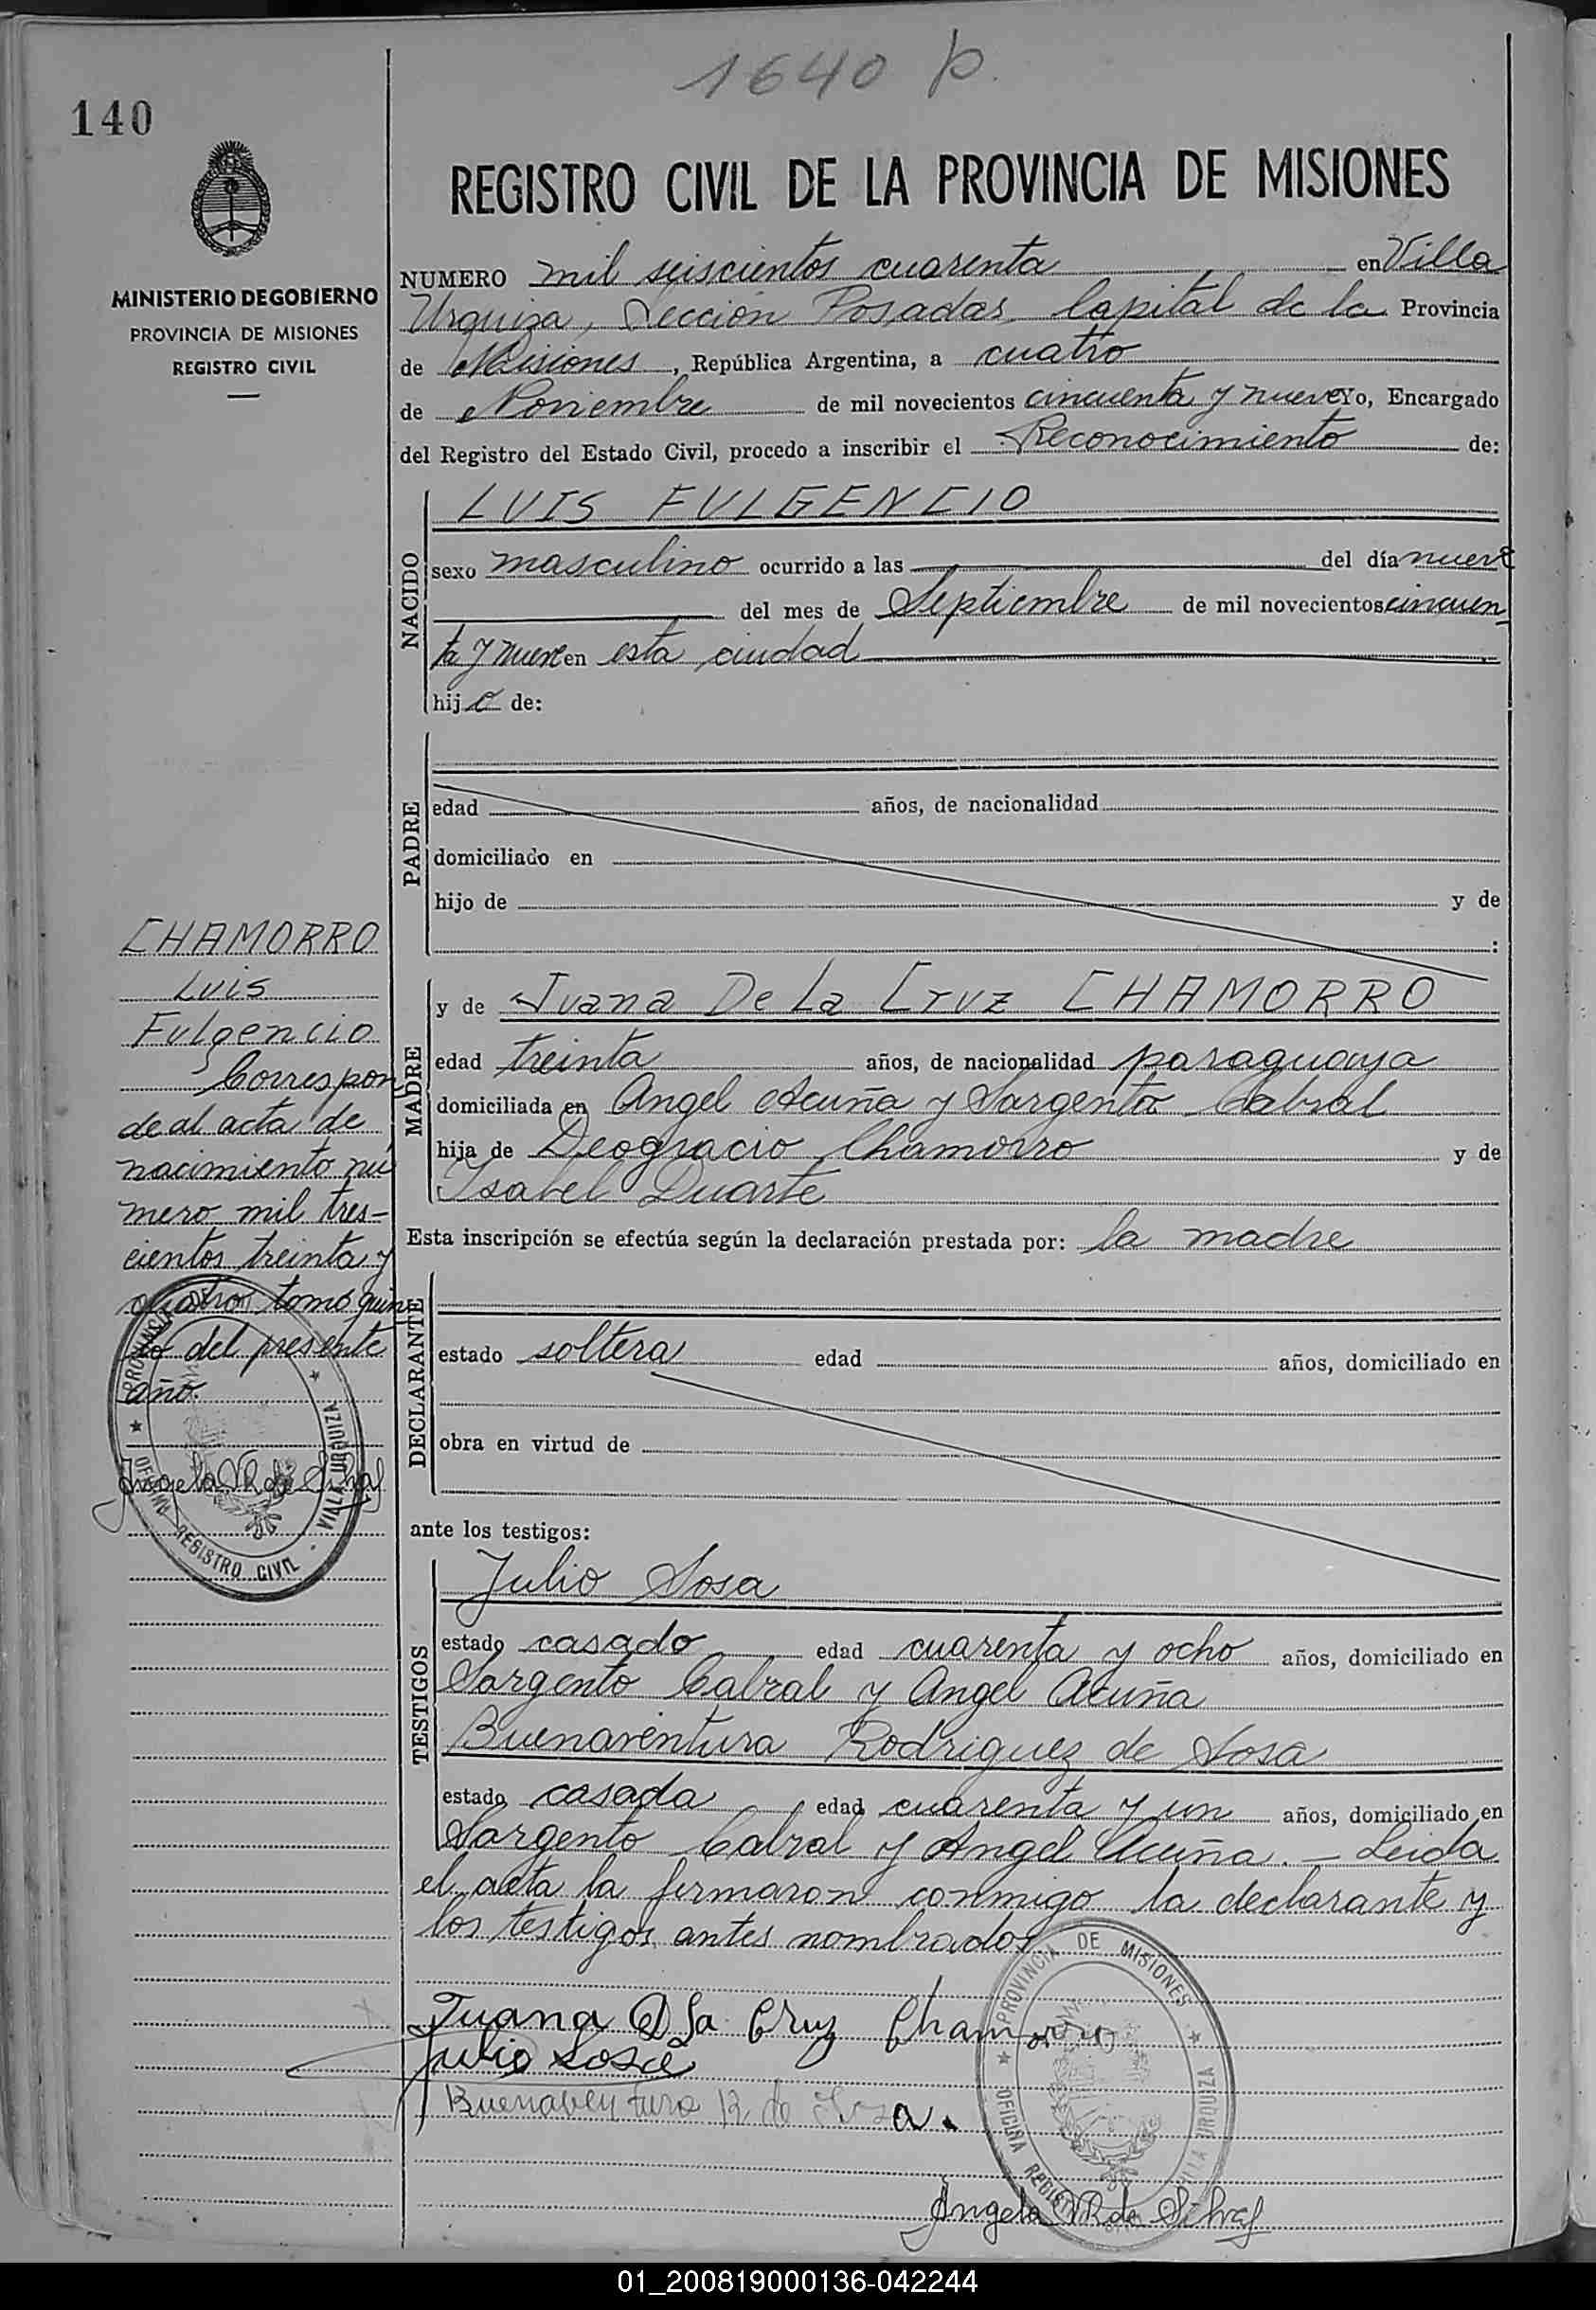 1640 p.
140
REGISTRO CIVIL DE LA PROVINCIA DE MISIONES
MINISTERIO DE GOBIERNO
PROVINCIA DE MISIONES
REGISTRO CIVIL
NUMERO mil seiscientos cuarenta en Villa
Urquiza, Sección Posadas, Capital de la Provincia
de Misiones, República Argentina, a cuatro
de Noviembre de mil novecientos cincuenta y nueve Yo, Encargado
del Registro del Estado Civil, procedo a inscribir el Reconocimiento de:
NACIDO
LUIS FULGENCIO
sexo masculino ocurrido a las del día nueve
del mes de Septiembre de mil novecientos cincuen
ta y nueve en esta ciudad
hijo de:
PADRE
edad años, de nacionalidad
domiciliado en
hijo de y de
:
MADRE
y de Juana De La Cruz CHAMORRO
edad treinta años, de nacionalidad paraguaya
domiciliada en Angel Acuña y Sargento Cabral
hija de Deogracio Chamorro y de
Isabel Duarte
Esta inscripción se efectúa según la declaración prestada por: la madre
DECLARANTE
estado soltera edad años, domiciliado en
obra en virtud de
ante los testigos:
TESTIGOS
Julio Sosa
estado casado edad cuarenta y ocho años, domiciliado en
Sargento Cabral y Angel Acuña
Buenaventura Rodriguez de Sosa
estado casada edad cuarenta y un años, domiciliado en
Sargento Cabral y Angel Acuña. - Leida
el acta la firmaron conmigo la declarante y
los testigos antes nombrados
Juana D La Cruz Chamorro
Julio Sosa
Buenaventura R de Sosa.
PROVINCIA DE MISIONES
OFICINA REGISTRO CIVIL VILLA URQUIZA
Angela R de Silva
CHAMORRO
Luis
Fulgencio
Correspon
de al acta de
nacimiento nú
mero mil tres-
cientos treinta y
cuatro tomo quin
to del presente
año.
Angela R de Silva
PROVINCIA DE
OFICINA REGISTRO CIVIL - VILLA URQUIZA
01_200819000136-042244